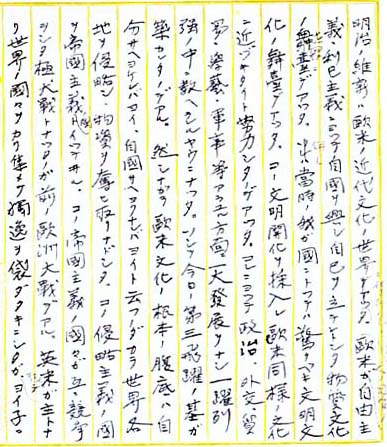 明治維新ハ欧米近代文化ノ世界デアッタ 欧米ガ自由主
義、利己主義ニヨッテ自国ヲ興シ自己ヲ立テントシタ物質文化
ノ舞台デアッタ。当時ノ我ガ国ニトッテハ驚クベキ文明文
化ノ舞台デアッタ。コノ文明開化ヲ採入レ欧米同様ノ文化
ニ近ヅキタイト努力シタノデアッタ。コレニヨッテ政治、外交、貿
易、学芸、軍事等アラユル方面ニ大発展ヲナシ一躍列
強ノ中ニ数ヘラレルヤウニナッタ。ソシテ今日ノ第三ノ飛躍ノ基ガ
築カレタノデアル。然シナガラ欧米文化ノ根本ノ腹底ハ自
分サヘヨケレバヨイ、自国サヘヨケレバヨイト云フノダカラ世界各
地ヲ侵略シ物資ヲ奪ヒ取リナドシタ。コノ侵略主義ノ国
ヲ帝国主義国トイッテヰル。コノ帝国主義ノ国々ガ互ニ競争
シタ極大戦トナッタノガ前ノ欧洲大戦デアル。英米ガ主トナ
リ世界ノ国々ヲカリ集メテ独逸ヲ袋ダタキニシタガ、ヨイ子。